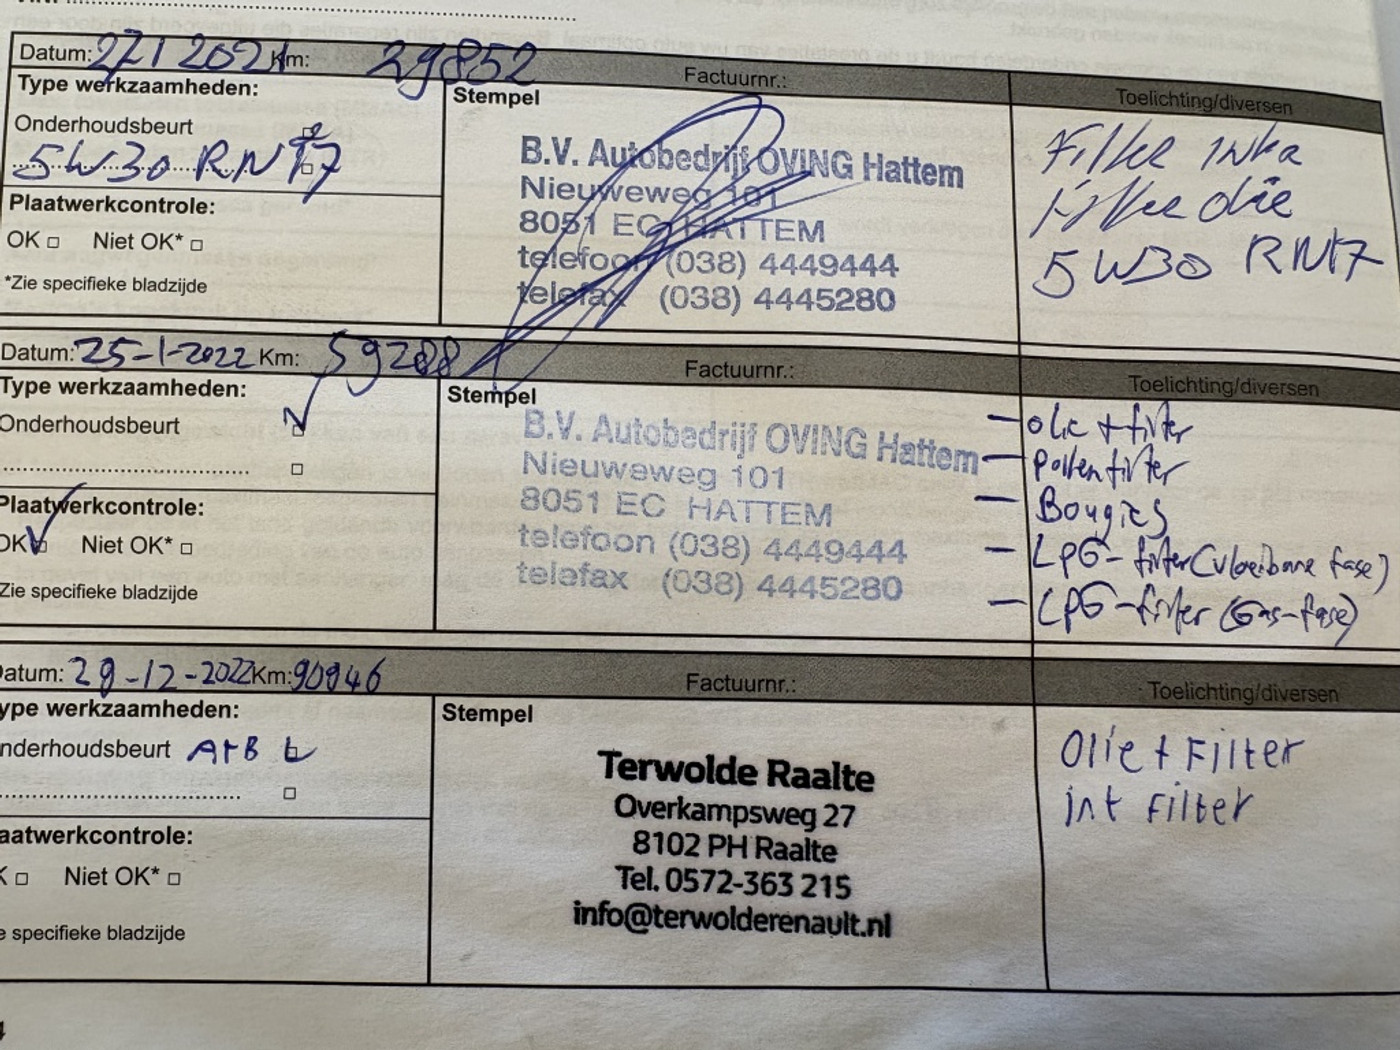 Datum: 27 1 2021 Km: 29852 Factuurnr.: Toelichting/diversen
Type werkzaamheden:
Onderhoudsbeurt
5W30 RN17
Plaatwerkcontrole:
OK Niet OK*
*Zie specifieke bladzijde
Stempel
B.V. Autobedrijf OVING Hattem
Nieuweweg 101
8051 EC HATTEM
telefoon (038) 4449444
telefax (038) 4445280
Filter
Filter olie
5W30 RN17
Datum: 25-1-2022 Km: 59288 Factuurnr.: Toelichting/diversen
Type werkzaamheden:
Onderhoudsbeurt
Plaatwerkcontrole:
OK Niet OK*
Zie specifieke bladzijde
Stempel
B.V. Autobedrijf OVING Hattem
Nieuweweg 101
8051 EC HATTEM
telefoon (038) 4449444
telefax (038) 4445280
- olie + filter
- pollenfilter
- Bougies
- LPG-filter (vloeibare fase)
- LPG-filter (Gas-fase)
Datum: 29-12-2022 Km: 90946 Factuurnr.: Toelichting/diversen
ype werkzaamheden:
nderhoudsbeurt A+B
aatwerkcontrole:
K Niet OK*
e specifieke bladzijde
Stempel
Terwolde Raalte
Overkampsweg 27
8102 PH Raalte
Tel. 0572-363 215
info@terwolderenault.nl
Olie + Filter
int Filter